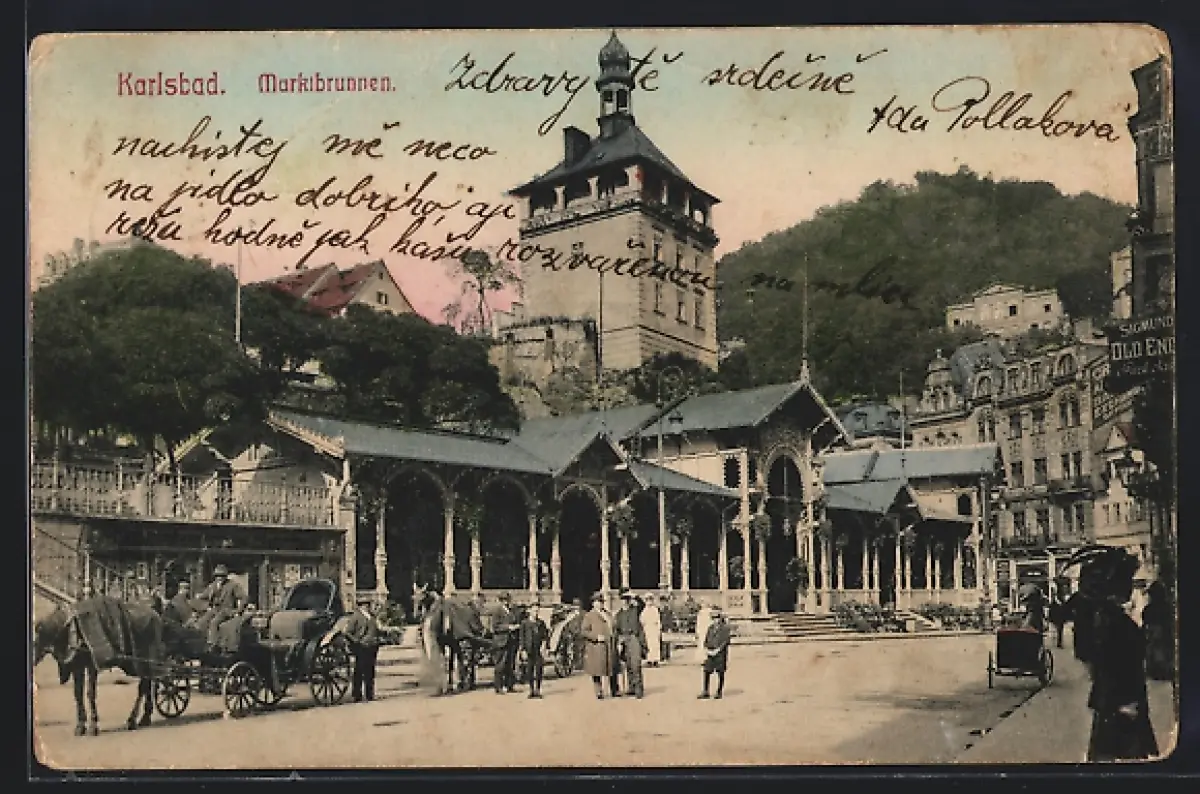 Karlsbad. Marktbrunnen.
Zdravy tě srdečně
Ida Pollakova
nachistej mě neco
na jidlo dobriho, aji
režu hodně jak kašu rozivařenou na mlíc
SIGMUND
OLD ENG